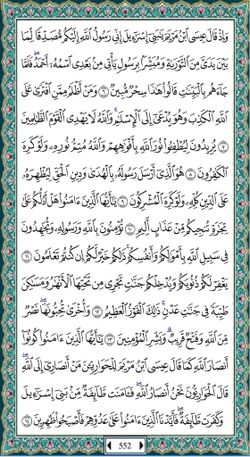 وَإِذْ قَالَ عِيسَى ابْنُ مَرْيَمَ يَٰبَنِىٓ إِسْرَٰٓءِيلَ إِنِّى رَسُولُ ٱللَّهِ إِلَيْكُم مُّصَدِّقًا لِّمَا
بَيْنَ يَدَىَّ مِنَ ٱلتَّوْرَىٰةِ وَمُبَشِّرًۢا بِرَسُولٍ يَأْتِى مِنۢ بَعْدِى ٱسْمُهُۥٓ أَحْمَدُ ۖ فَلَمَّا
جَآءَهُم بِٱلْبَيِّنَٰتِ قَالُوا۟ هَٰذَا سِحْرٌ مُّبِينٌ ٦ وَمَنْ أَظْلَمُ مِمَّنِ ٱفْتَرَىٰ عَلَى
ٱللَّهِ ٱلْكَذِبَ وَهُوَ يُدْعَىٰٓ إِلَى ٱلْإِسْلَٰمِ ۚ وَٱللَّهُ لَا يَهْدِى ٱلْقَوْمَ ٱلظَّٰلِمِينَ
٧ يُرِيدُونَ لِيُطْفِـُٔوا۟ نُورَ ٱللَّهِ بِأَفْوَٰهِهِمْ وَٱللَّهُ مُتِمُّ نُورِهِۦ وَلَوْ كَرِهَ
ٱلْكَٰفِرُونَ ٨ هُوَ ٱلَّذِىٓ أَرْسَلَ رَسُولَهُۥ بِٱلْهُدَىٰ وَدِينِ ٱلْحَقِّ لِيُظْهِرَهُۥ
عَلَى ٱلدِّينِ كُلِّهِۦ وَلَوْ كَرِهَ ٱلْمُشْرِكُونَ ٩ يَٰٓأَيُّهَا ٱلَّذِينَ ءَامَنُوا۟ هَلْ أَدُلُّكُمْ عَلَىٰ
تِجَٰرَةٍ تُنجِيكُم مِّنْ عَذَابٍ أَلِيمٍ ١٠ تُؤْمِنُونَ بِٱللَّهِ وَرَسُولِهِۦ وَتُجَٰهِدُونَ
فِى سَبِيلِ ٱللَّهِ بِأَمْوَٰلِكُمْ وَأَنفُسِكُمْ ۚ ذَٰلِكُمْ خَيْرٌ لَّكُمْ إِن كُنتُمْ تَعْلَمُونَ ١١
يَغْفِرْ لَكُمْ ذُنُوبَكُمْ وَيُدْخِلْكُمْ جَنَّٰتٍ تَجْرِى مِن تَحْتِهَا ٱلْأَنْهَٰرُ وَمَسَٰكِنَ
طَيِّبَةً فِى جَنَّٰتِ عَدْنٍ ۚ ذَٰلِكَ ٱلْفَوْزُ ٱلْعَظِيمُ ١٢ وَأُخْرَىٰ تُحِبُّونَهَا ۖ نَصْرٌ
مِّنَ ٱللَّهِ وَفَتْحٌ قَرِيبٌ ۗ وَبَشِّرِ ٱلْمُؤْمِنِينَ ١٣ يَٰٓأَيُّهَا ٱلَّذِينَ ءَامَنُوا۟ كُونُوٓا۟
أَنصَارَ ٱللَّهِ كَمَا قَالَ عِيسَى ٱبْنُ مَرْيَمَ لِلْحَوَارِيِّۦنَ مَنْ أَنصَارِىٓ إِلَى ٱللَّهِ ۖ
قَالَ ٱلْحَوَارِيُّونَ نَحْنُ أَنصَارُ ٱللَّهِ ۖ فَـَٔامَنَت طَّآئِفَةٌ مِّنۢ بَنِىٓ إِسْرَٰٓءِيلَ
وَكَفَرَت طَّآئِفَةٌ ۖ فَأَيَّدْنَا ٱلَّذِينَ ءَامَنُوا۟ عَلَىٰ عَدُوِّهِمْ فَأَصْبَحُوا۟ ظَٰهِرِينَ ١٤
552